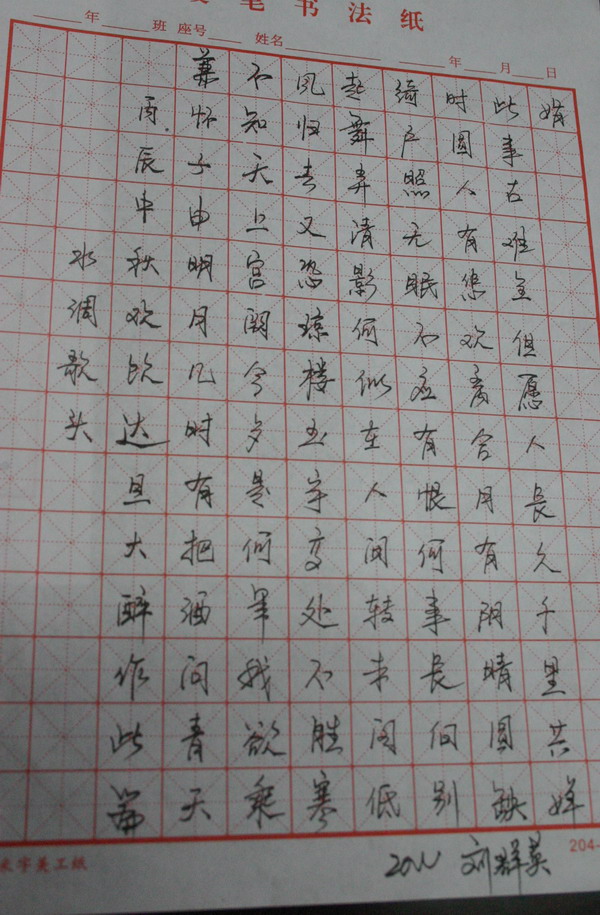 笔书法纸
年 班 座号 姓名 年 月 日
水调歌头
丙辰中秋欢饮达旦大醉作此篇
兼怀子由明月几时有把酒问青天
不知天上宫阙今夕是何年我欲乘
风归去又恐琼楼玉宇高处不胜寒
起舞弄清影何似在人间转朱阁低
绮户照无眠不应有恨何事长向别
时圆人有悲欢离合月有阴晴圆缺
此事古难全但愿人长久千里共婵
娟
2011 刘群英
米字美工纸
204-